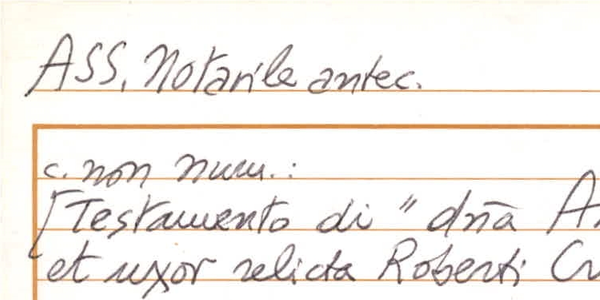 ASS. Notarile antec.
c. non num.:
[Testamento di " dn̄a
et uxor relicta Roberti